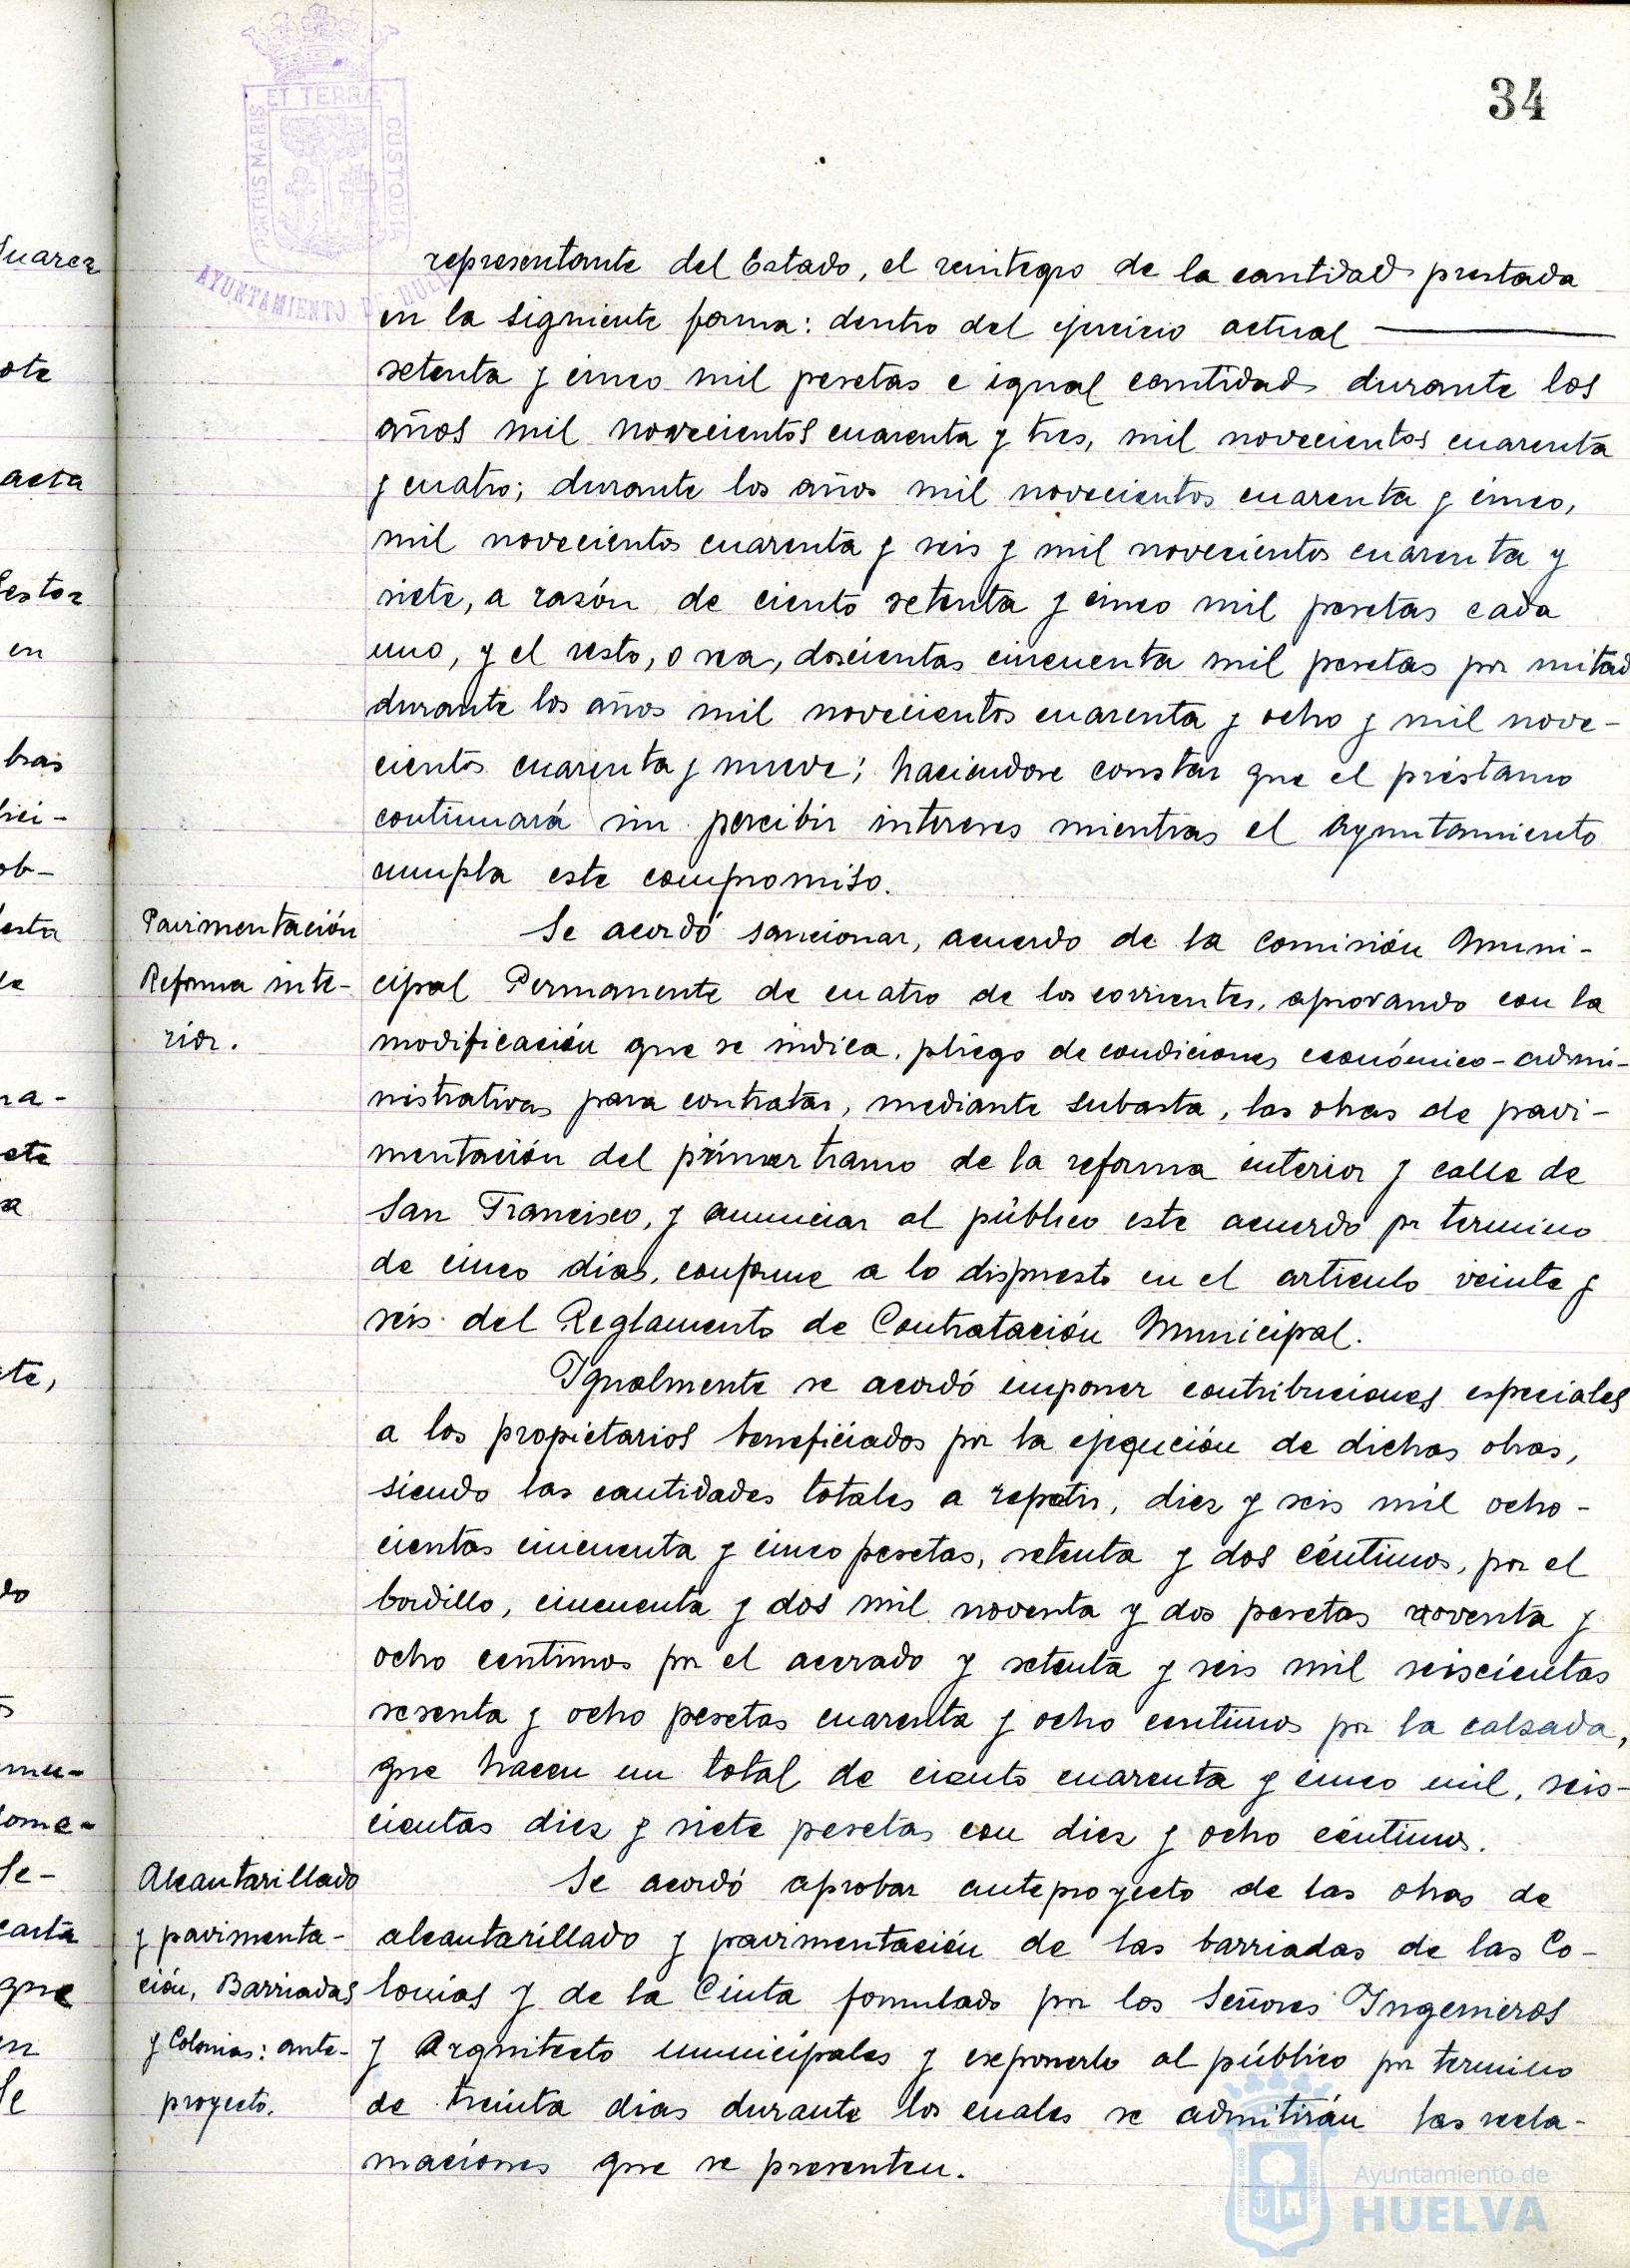 34
PORTUS MARIS ET TERRAE CUSTODIA
AYUNTAMIENTO DE HUELVA
representante del Estado, el reintegro de la cantidad prestada
en la siguiente forma: dentro del ejercicio actual
setenta y cinco mil pesetas e igual cantidad durante los
años mil novecientos cuarenta y tres, mil novecientos cuarenta
y cuatro; durante los años mil novecientos cuarenta y cinco,
mil novecientos cuarenta y seis y mil novecientos cuarenta y
siete, a razón de ciento setenta y cinco mil pesetas cada
uno, y el resto, o sea, doscientas cincuenta mil pesetas por mitad
durante los años mil novecientos cuarenta y ocho y mil nove-
cientos cuarenta y nueve; haciendose constar que el préstamo
continuará sin percibir intereses mientras el Ayuntamiento
cumpla este compromiso.
Pavimentación
Reforma inte-
rior.
Se acordó sancionar, acuerdo de la Comisión Muni-
cipal Permanente de cuatro de los corrientes, aprovando con la
modificación que se indica, pliego de condiciones económico-admi-
nistrativas para contratar, mediante subasta, las obras de pavi-
mentación del primer tramo de la reforma interior y calle de
San Francisco, y anunciar al público este acuerdo por termino
de cinco dias, conforme a lo dispuesto en el articulo veinte y
seis del Reglamento de Contratación Municipal.
Igualmente se acordó imponer contribuciones especiales
a los propietarios beneficiados por la ejecución de dichas obras,
siendo las cantidades totales a repetir, diez y seis mil ocho-
cientas cincuenta y cinco pesetas, setenta y dos céntimos, por el
bordillo, cincuenta y dos mil noventa y dos pesetas noventa y
ocho centimos por el acerado y setenta y seis mil seiscientas
sesenta y ocho pesetas cuarenta y ocho centimos por la calzada,
que hacen un total de ciento cuarenta y cinco mil, seis-
cientas diez y siete pesetas con diez y ocho céntimos.
Alcantarillado
y pavimenta-
ción, Barriadas
y Colonias: ante-
proyecto.
Se acordó aprobar anteproyecto de las obras de
alcantarillado y pavimentación de las barriadas de las Co-
lonias y de la Cinta formulado por los Señores Ingenieros
y Arquitecto municipales y exponerlo al público por termino
de treinta dias durante los cuales se admitirán las recla-
maciones que se presenten.
Ayuntamiento de
HUELVA